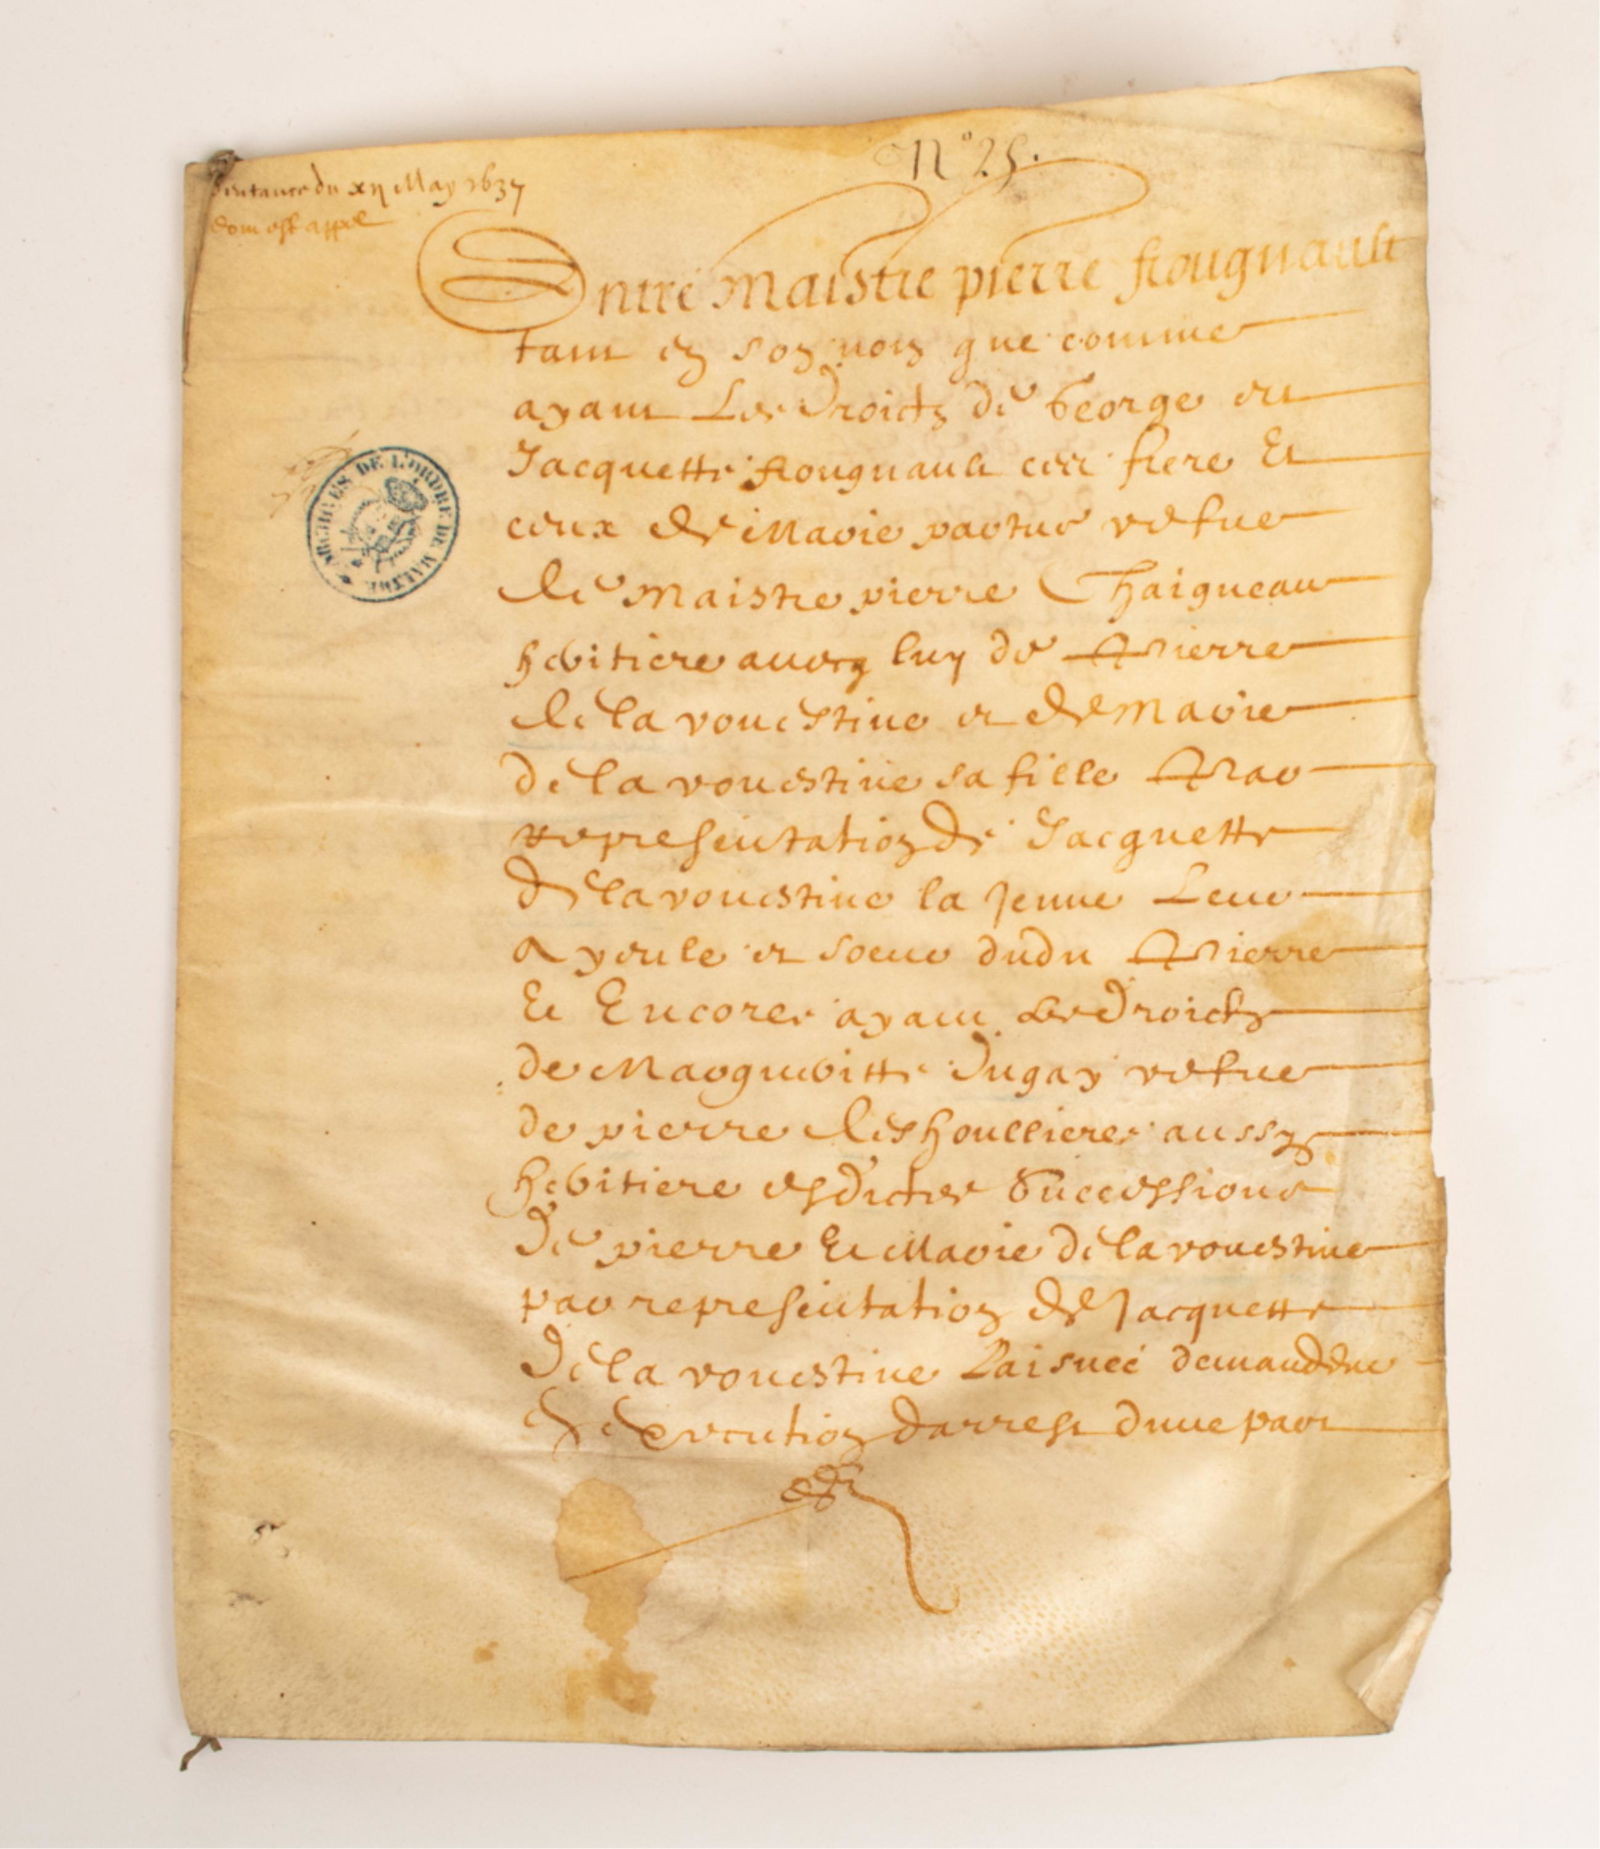 N° 25.
Sentance du xij May 1637
dont est appel
Entre Maistre pierre frougnault
tant en son nom que comme
ayant Les droictz de George et
Jacquette frougnault ses frere Et
ceux de Marie partue vefue
de Maistre pierre Chaigneau
heritiere auecq luy de Pierre
de la vouestine et de Marie
de la vouestine sa fille Par
representation de Jacquette
de la vouestine la Jeune Leur
ayeulle et soeur dudit Pierre
Et Encores ayant Les droictz
de Margueritte dugay vefue
de pierre deshoullieres aussy
heritiere esdictes Successions
De pierre Et Marie de la vouestine
par representation de Jacquette
De la vouestine Laisnee demandeur
En Execution darrest dune part
ARCHIVES DE L'ORDRE DE MALTHE